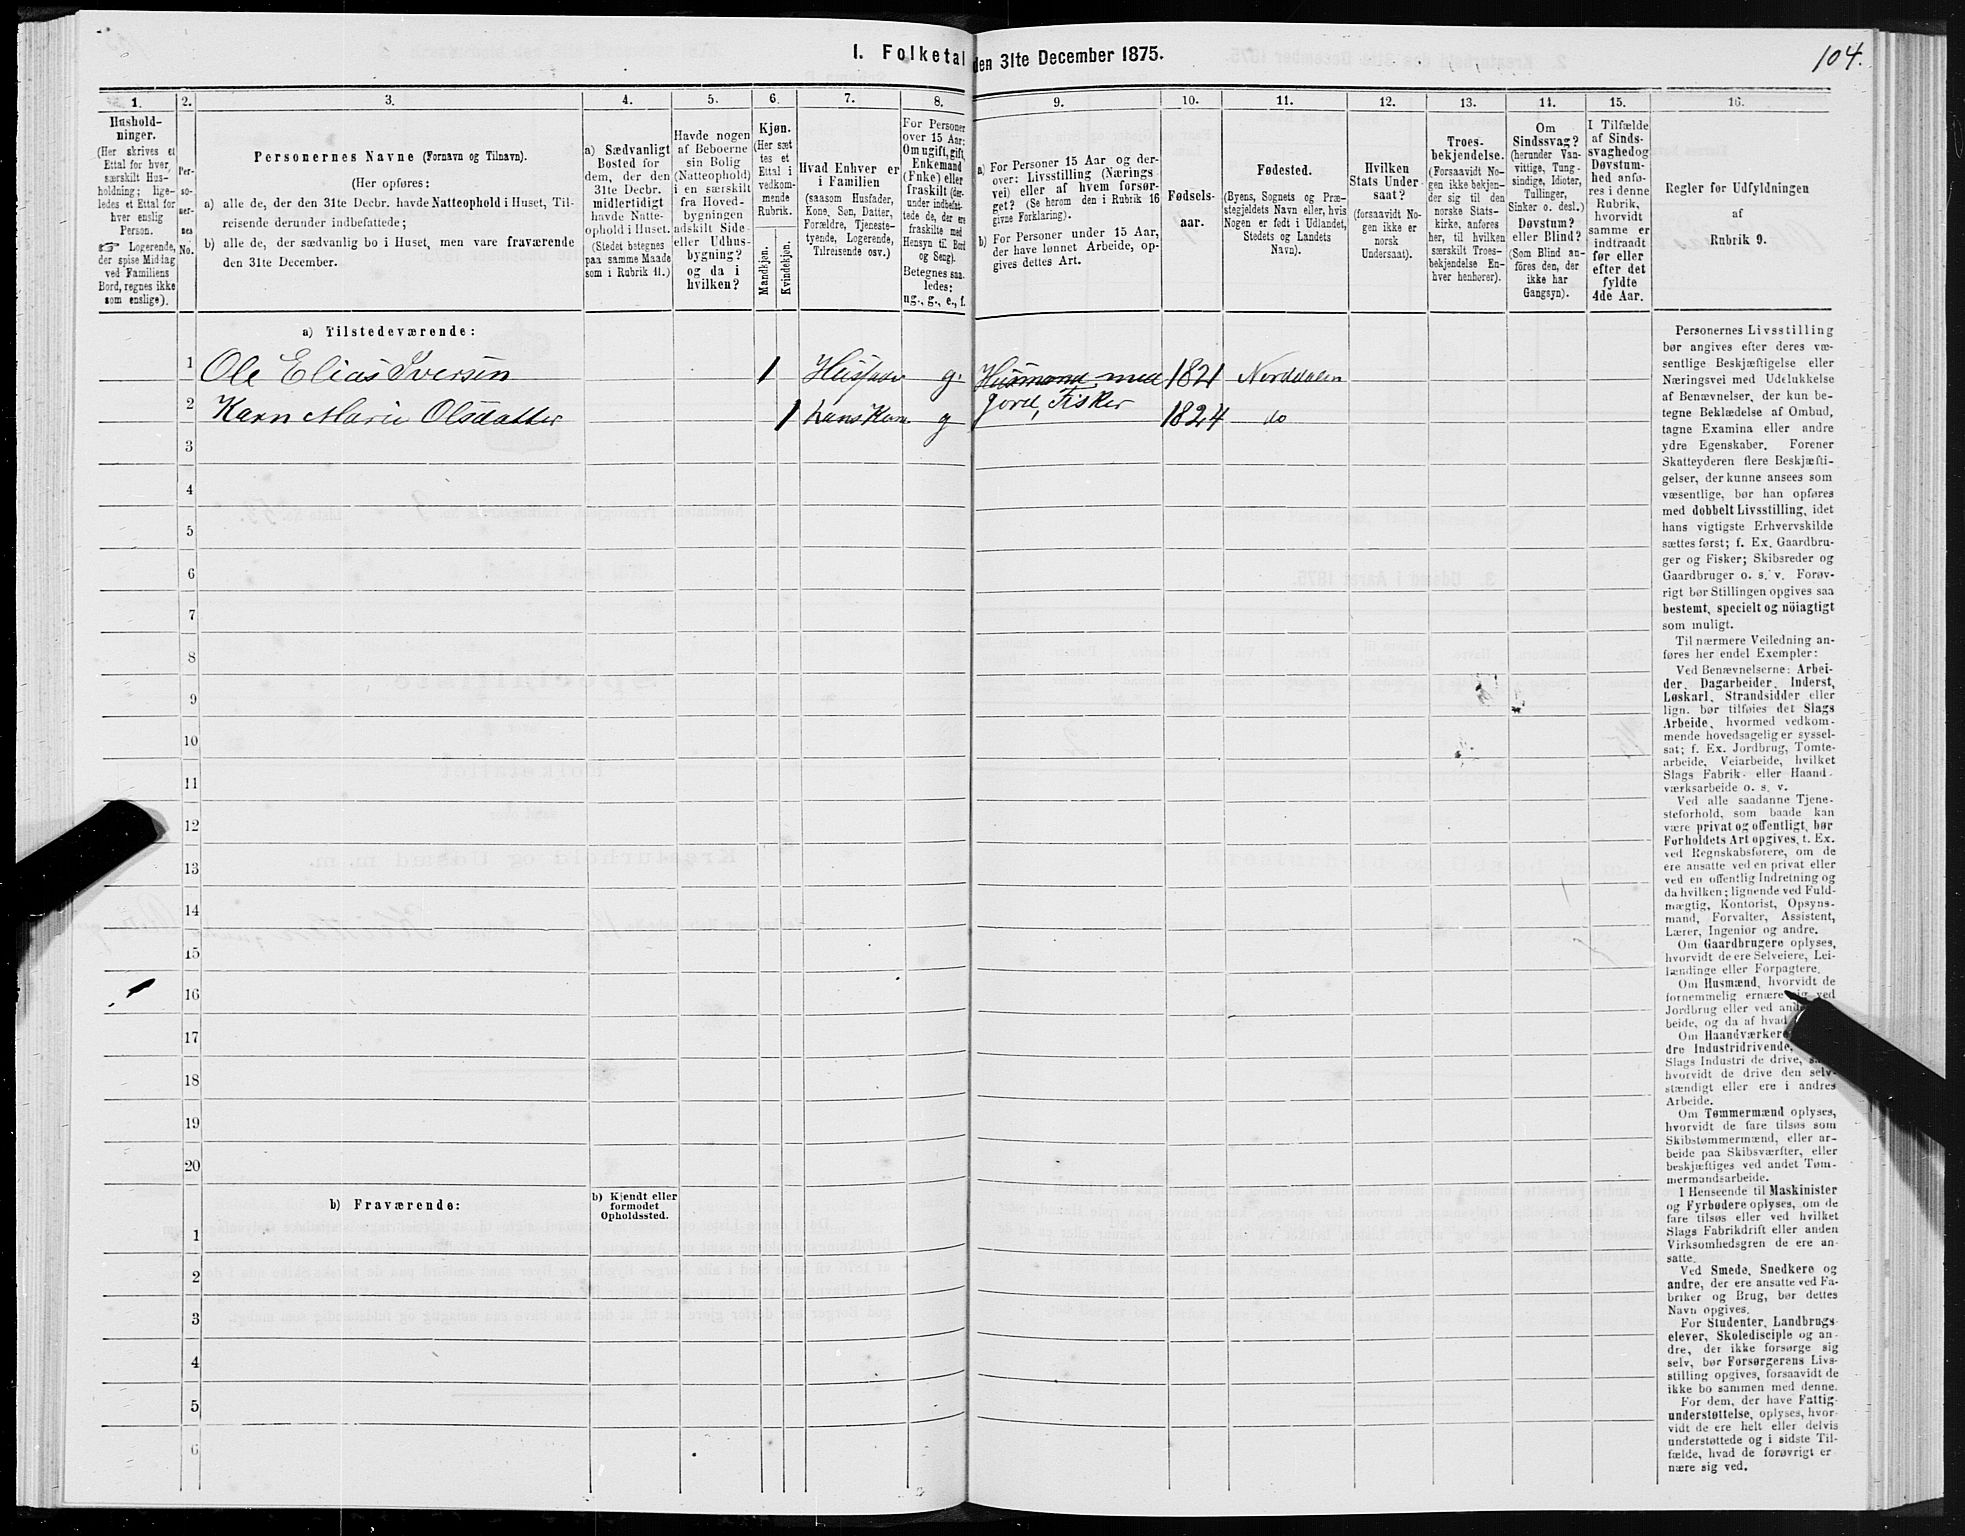 I. Folketal den 31te December 1875.
104.
1.
2.
3.
4.
5.
6.
7.
8.
9.
10.
11.
12.
13.
14.
15.
16.
Hushold-
ninger.
(Her skrives et
Ettal for hver
særskilt Hus-
holdning; lige-
ledes et Ettal for
hver enslig
Person.
☞ Logerende,
der spise Middag
ved Familiens
Bord, regnes ikke
som enslige).
Per-
so-
ner-
nes
No.
Personernes Navne (Fornavn og Tilnavn).
(Her opføres:
a) alle de, der den 31te Decbr. havde Natteophold i Huset, Til-
reisende derunder indbefattede;
b) alle de, der sædvanlig bo i Huset, men vare fraværende
den 31te December.
a) Sædvanligt
Bosted for
dem, der den
31te Decbr.
midlertidigt
havde Natte-
ophold i Huset.
(Stedet betegnes
paa samme Maade
som i Rubrik 11.)
Havde nogen
af Beboerne
sin Bolig
(Natteophold)
i en særskilt
fra Hoved-
bygningen
adskilt Side-
eller Udhus-
bygning?
og da i
hvilken?
Kjøn.
(Her sæt
tes et
Ettal i
vedkom-
mende
Rubrik.
Mandkjøn.
Kvindekjøn.
Hvad Enhver er
i Familien
(saasom Husfader,
Kone, Søn, Datter,
Forældre, Tjeneste-
tyende, Logerende,
Tilreisende osv.)
For Personer
over 15 Aar:
Om ugift, gift,
Enkemand
(Enke) eller
fraskilt (der-
under indbefat-
tede de, der ere
fraskilte med
Hensyn til Bord
og Seng).
Betegnes saa-
ledes:
ug., g., e., f.
a) For Personer 15 Aar og der-
over: Livsstilling (Nærings
vei) eller af hvem forsør-
get? (Se herom den i Rubrik 16
givne Forklaring).
b) For Personer under 15 Aar,
der have lønnet Arbeide, op-
gives dettes Art.
Fødsels-
aar.
Fødested.
(Byens, Sognets og Præ-
stegjeldets Navn eller, hvis
Nogen er født i Udlandet,
Stedets og Landets
Navn).
Hvilken
Stats Under
saat?
(forsaavidt No-
gen ikke er
norsk
Undersaat).
Troes-
bekjendelse.
(Forsaavidt No-
gen ikke bekjen-
der sig til den
norske Stats-
kirke, anføres
her, til hvilken
særskilt Troes-
bekjendelse En-
hver henhører).
Om
Sindssvag?
(herunder Van-
vittige, Tung-
sindige, Idioter,
Tullinger,
Sinker o. desl.)
Døvstum?
eller Blind?
(Som Blind an-
føres den, der
ikke har
Gangsyn).
I Tilfælde
af Sinds-
svaghed og
Døvstum-
hed anfø-
res i denne
Rubrik,
hvorvidt
samme er
indtraadt
før eller
efter det
fyldte
4de Aar.
Regler for Udfyldningen
af
Rubrik 9.
a) Tilstedeværende:
1 Ole Elias Iversen 1 Husfader g. Husmand med 1821 Norddalen
2 Karn Marie Olsdatter 1 hans Kone g Jord, Fisker 1824 do
3
4
5
6
7
8
9
10
11
12
13
14
15
16
17
18
19
20
b) Fraværende:
b) Kjendt eller
formodet
Opholdssted.
1
2
3
4
5
6
Personernes Livsstilling
bør angives efter deres væ-
sentlige Beskjæftigelse eller
Næringsvei med Udelukkelse
af Benævnelser, der kun be-
tegne Beklædelse af Ombud,
tagne Examina eller andre
ydre Egenskaber. Forener
Skatteyderen flere Beskjæfti-
gelser, der kunne ansees som
væsentlige, bør han opføres
med dobbelt Livsstilling, idet
hans vigtigste Erhvervskilde
sættes først; f. Ex. Gaardbru-
ger og Fisker; Skibsreder og
Gaardbruger o. s. v. Forøv-
rigt bør Stillingen opgives saa
bestemt, specielt og nöiagtigt
som muligt.
Til nærmere Veiledning an-
føres her endel Exempler:
Ved Benævnelserne: Arbei-
der, Dagarbeider, Inderst,
Løskarl, Strandsidder eller
lign. bør tilføies det Slags
Arbeide, hvormed vedkom-
mende hovedsagelig er syssel-
sat; f. Ex. Jordbrug, Tomte-
arbeide, Veiarbeide, hvilket
Slags Fabrik- eller Haand-
værksarbeide o. s. v.
Ved alle saadanne Tjene-
steforhold, som baade kan
være privat og offentligt, bør
Forholdets Art opgives, t. Ex.
ved Regnskabsførere, om de
ere ansatte ved en privat eller
ved en offentlig Indretning og
da hvilken; lignende ved Fuld-
mægtig, Kontorist, Opsyns-
mand, Forvalter, Assistent,
Lærer, Ingeniør og andre.
Om Gaardbrugere oplyses,
hvorvidt de ere Selveiere, Lei-
lændinge eller Forpagtere.
Om Husmænd, hvorvidt de
fornemmelig ernære sig ved
Jordbrug eller ved
beide, og da af hvad
Om Haandværkere
dre Industridrivende,
Slags Industri de drive,
hvorvidt de drive den selv-
stændigt eller ere i andres
Arbeide.
Om Tømmermænd oplyses,
hvorvidt de fare tilsøs som
Skibstømmermænd, eller ar-
beide paa Skibsværfter, eller
beskjæftiges ved andet Tøm-
mermandsarbeide.
I Henseende til Maskinister
og Fyrbødere oplyses, om de
fare tilsøs eller ved hvilket
Slags Fabrikdrift eller anden
Virksomhedsgren de ere an-
satte.
Ved Smede, Snedkere og
andre, der ere ansatte ved Fa-
briker og Brug, bør dettes
Navn opgives.
For Studenter, Landbrugs-
elever, Skoledisciple og an-
dre, der ikke forsørge sig
selv, bør Forsørgerens Livs-
stilling opgives, forsaavidt de
ikke bo sammen med denne.
For dem, der have Fattig-
understøttelse, oplyses, hvor-
vidt de ere helt eller delvis
understøttede og i sidste Til-
fælde, hvad de forøvrigt er-
nære sig ved.